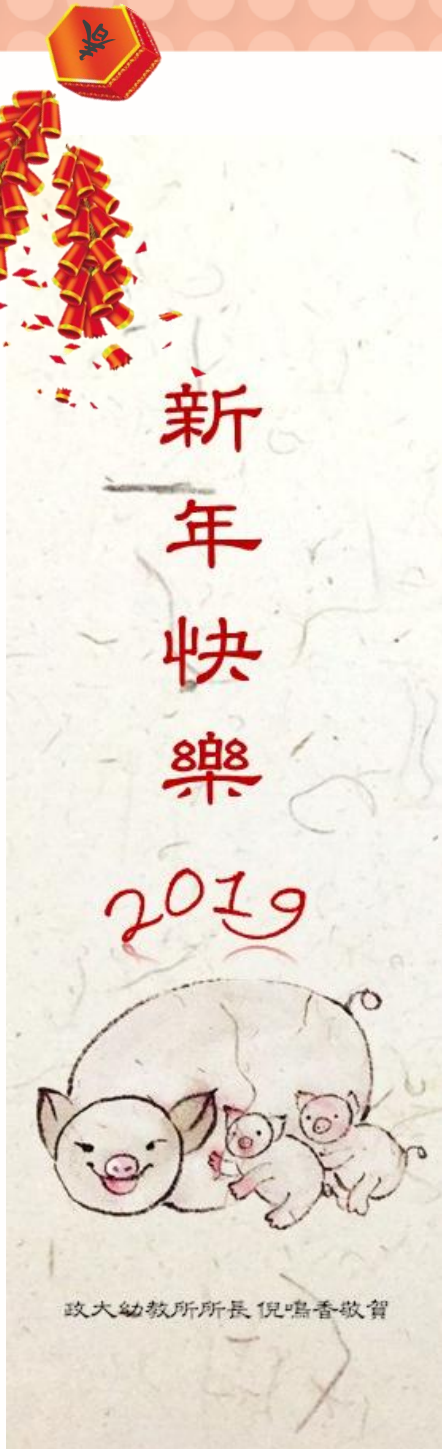 新年快樂
2019
政大幼教所所長倪鳴香敬賀